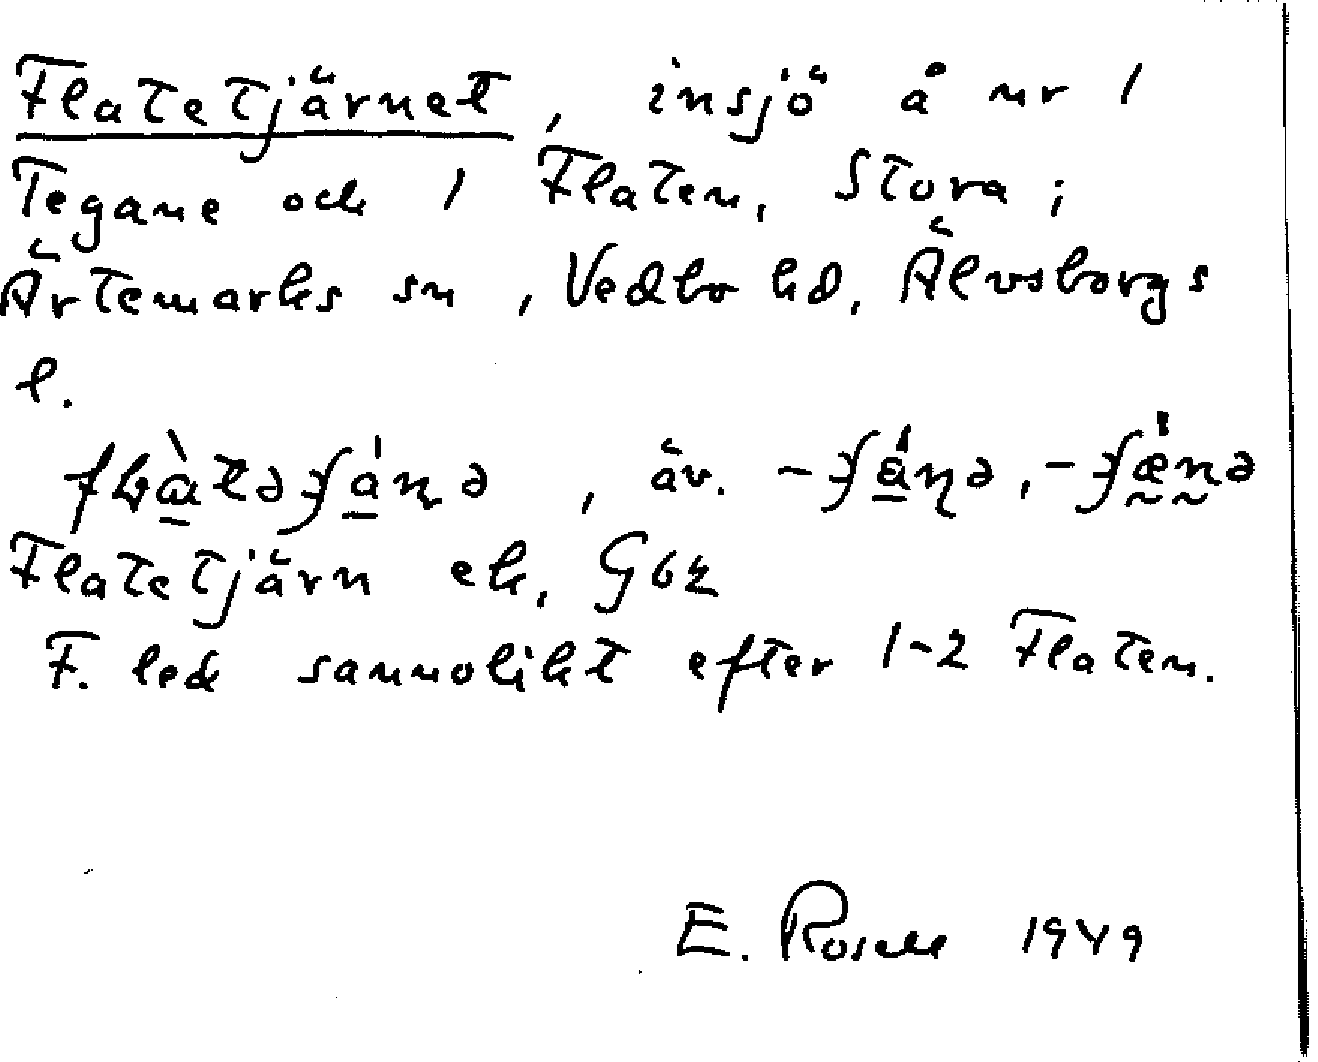 Flatetjärnet, insjö å nr 1
Tegane och 1 Flaten, Stora i
Ärtemarks sn, Vedbo hd, Älvsborgs
l.
, äv.
Flatetjärn ek, Gbk
F. led sannolikt efter 1-2 Flaten.
E. Rosell 1949